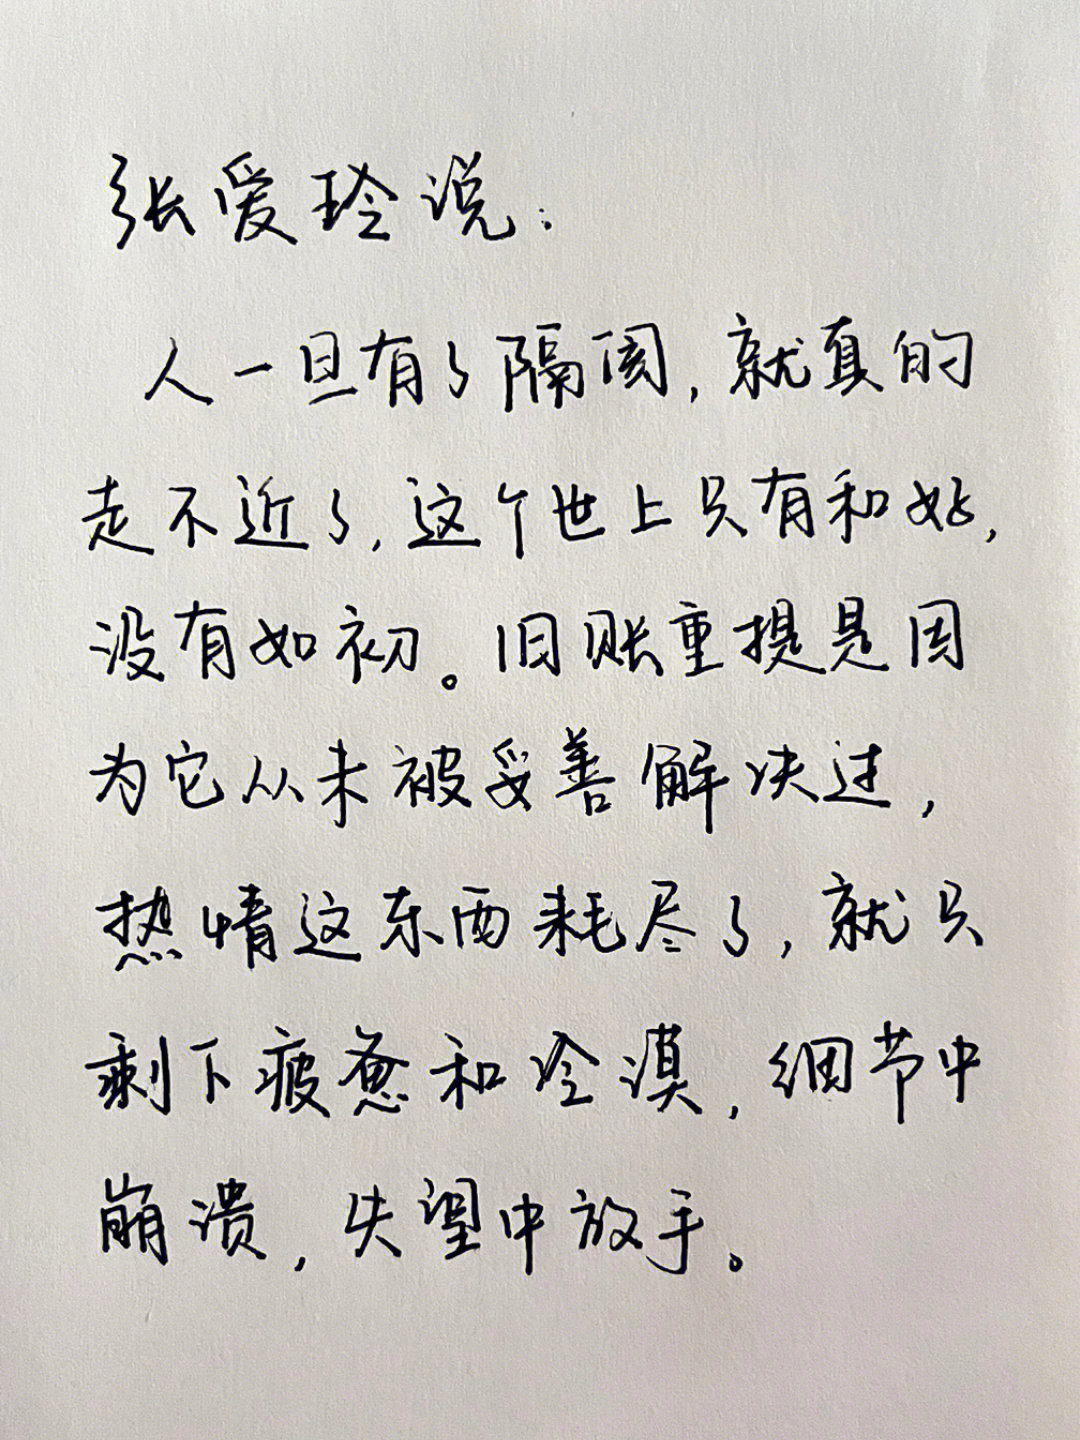 张爱玲说：
人一旦有了隔阂，就真的
走不近了，这个世上只有和好，
没有如初。旧账重提是因
为它从未被妥善解决过，
热情这东西耗尽了，就只
剩下疲惫和冷漠，细节中
崩溃，失望中放手。